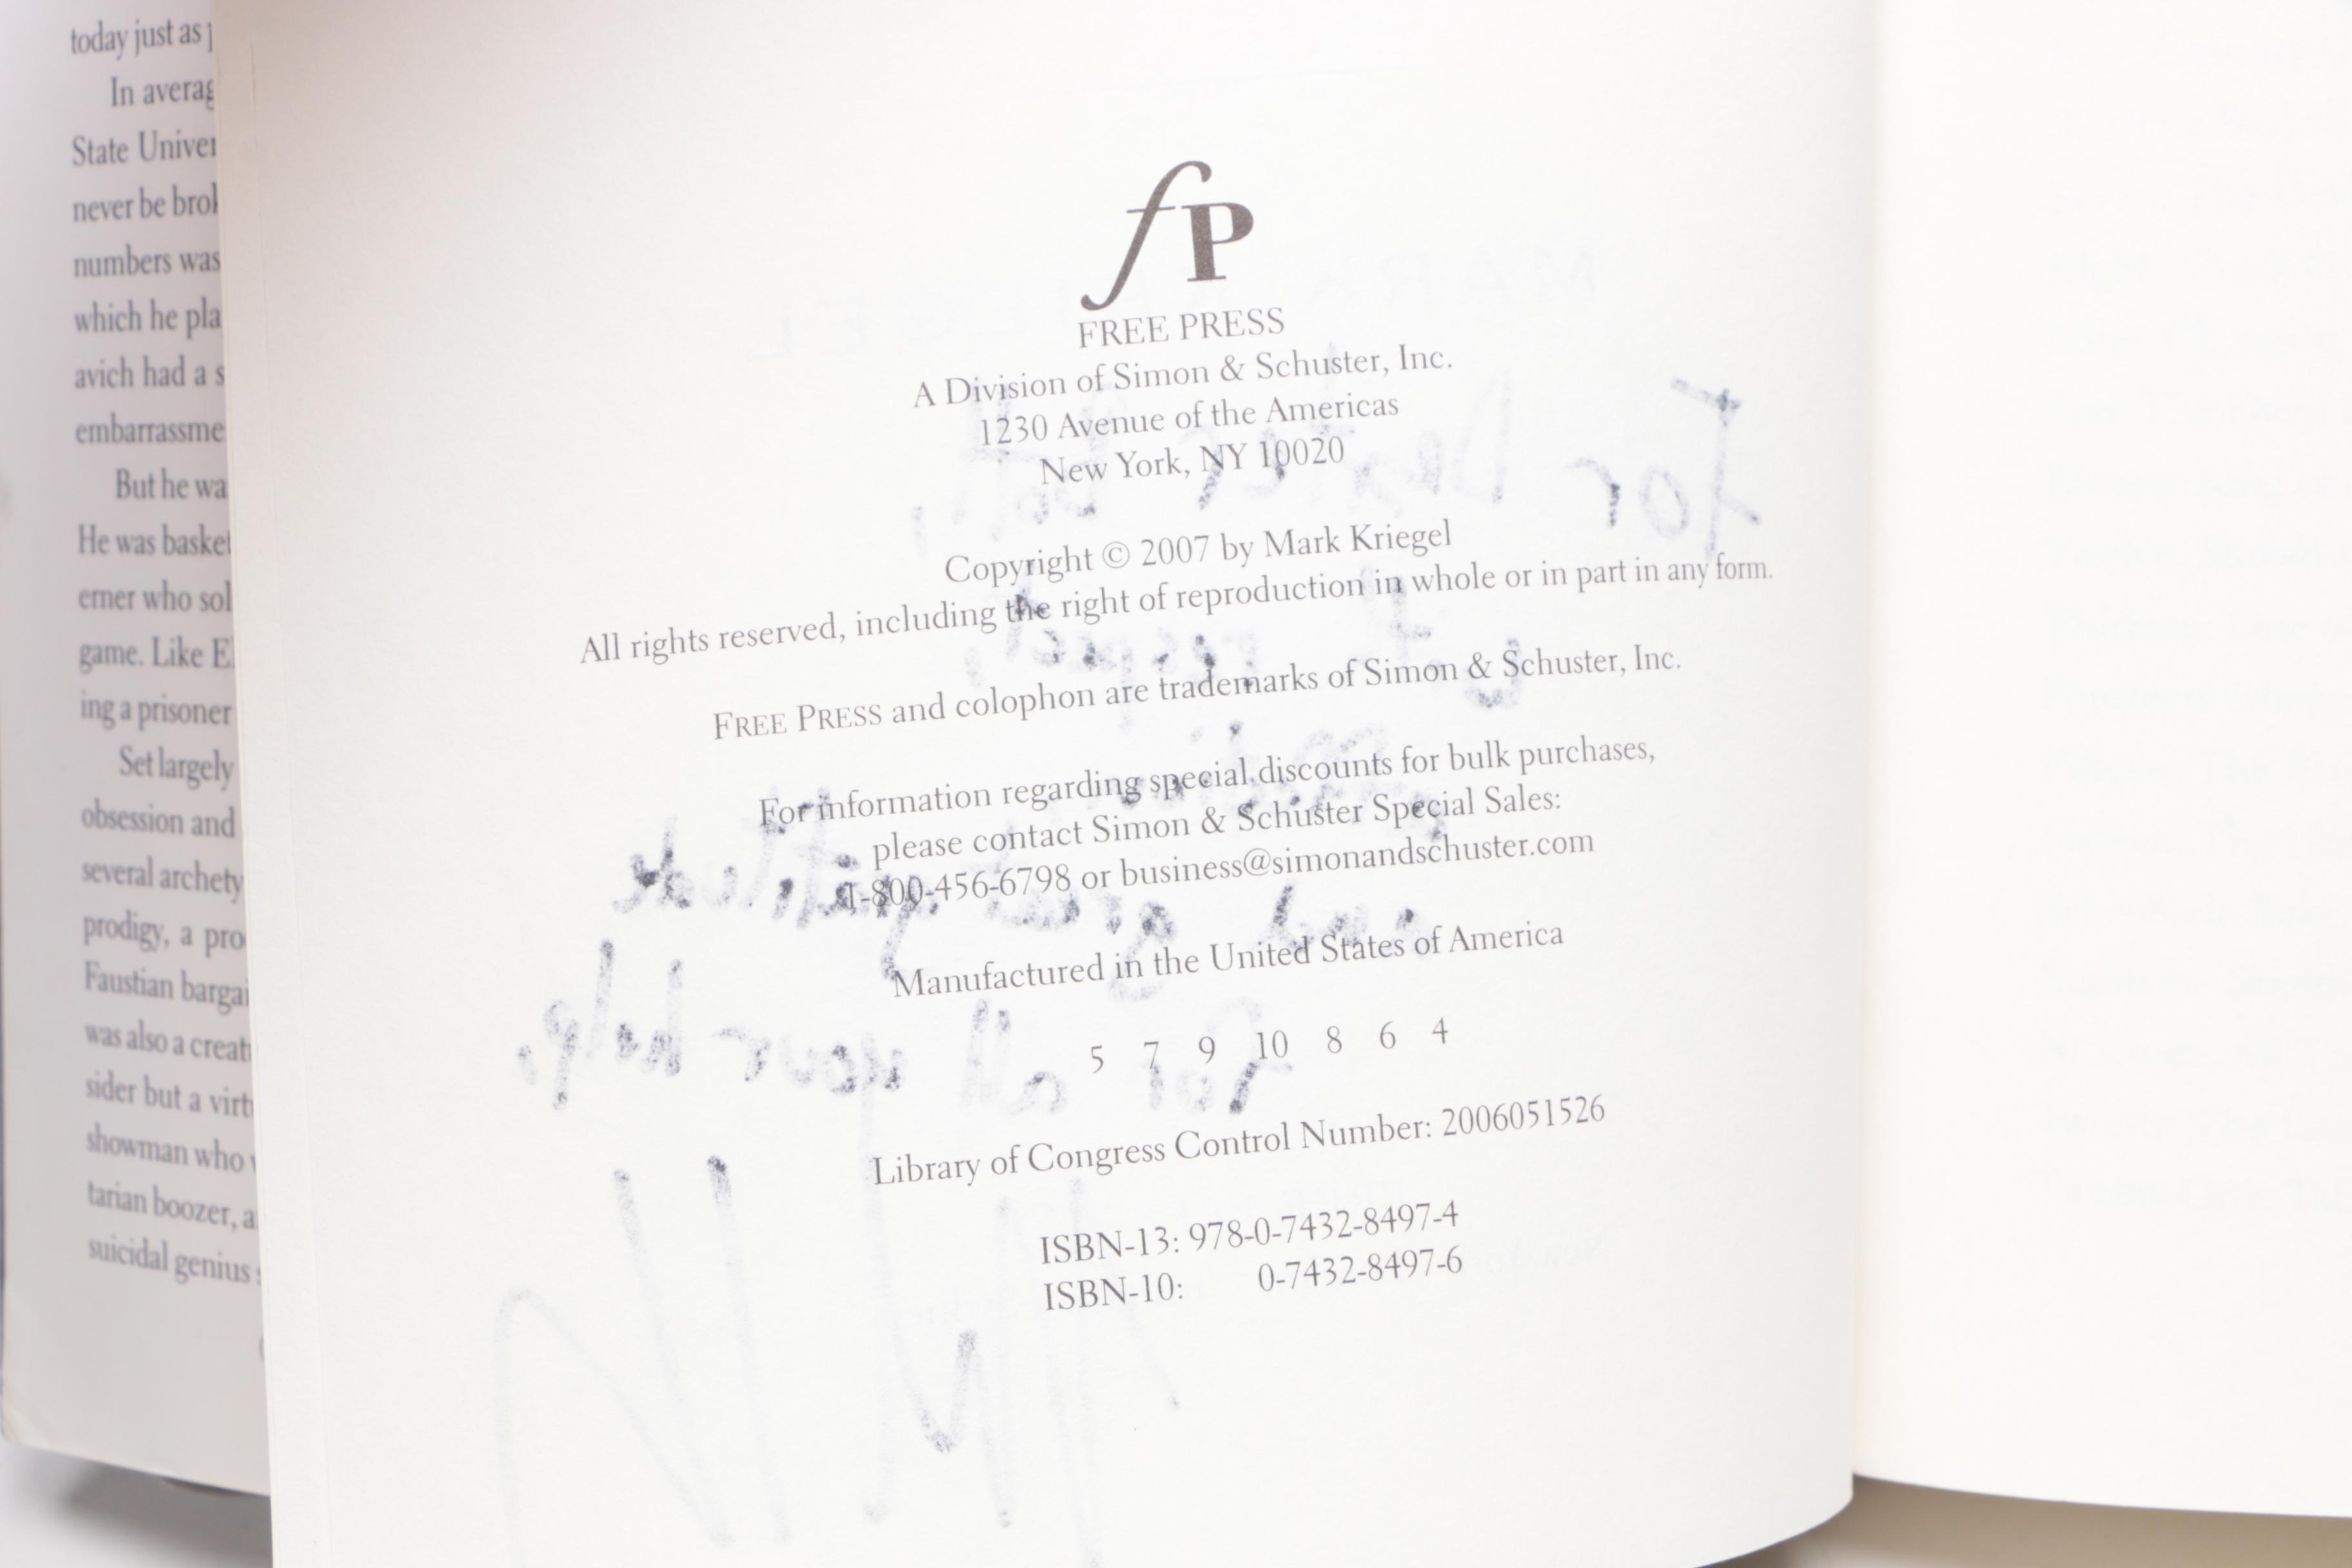 today just as
In averag
State Univer
never be brok
numbers was
which he pla
avich had a s
embarrassme
But he wa
He was basket
erner who sol
game. Like E
ing a prisoner
Set largely
obsession and
several archety
prodigy, a pro
Faustian bargai
was also a creat
sider but a virt
showman who
tarian boozer, a
suicidal genius s
fP
FREE PRESS
A Division of Simon & Schuster, Inc.
1230 Avenue of the Americas
New York, NY 10020
Copyright © 2007 by Mark Kriegel
All rights reserved, including the right of reproduction in whole or in part in any form.
FREE PRESS and colophon are trademarks of Simon & Schuster, Inc.
For information regarding special discounts for bulk purchases,
please contact Simon & Schuster Special Sales:
1-800-456-6798 or business@simonandschuster.com
Manufactured in the United States of America
5 7 9 10 8 6 4
Library of Congress Control Number: 2006051526
ISBN-13: 978-0-7432-8497-4
ISBN-10: 0-7432-8497-6
For
respect,
and great gratitude
for all your help.